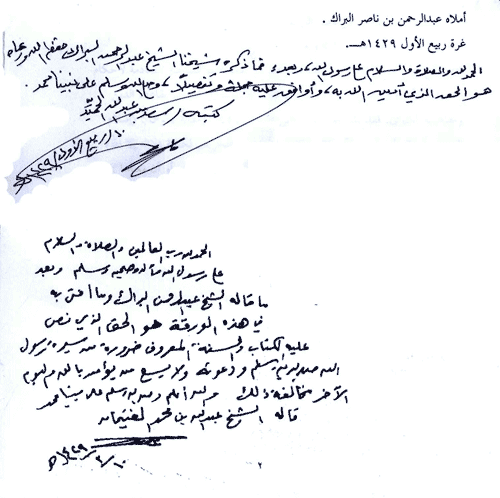 أملاه عبدالرحمن بن ناصر البراك .
غرة ربيع الأول ١٤٢٩هـ .
الحمد لله والصلاة والسلام على رسول الله ، وبعد : فما ذكره شيخنا الشيخ عبد الرحمن البراك حفظه الله ورعاه
هو الحق الذي أدين الله به ، وأوافق عليه جملة وتفصيلاً ، وصلى الله وسلم على نبينا محمد .
كتبه / سعد بن عبد الله الحميّد
١٠/ ربيع الأول/ ١٤٢٩هـ
الحمد لله رب العالمين والصلاة والسلام
على رسول الله وآله وصحبه وسلم وبعد
ما قاله الشيخ عبد الرحمن البراك وما أفتى به
في هذه الورقة هو الحق الذي نص
عليه الكتاب والسنة المعروف ضرورة من سيرة رسول
الله صلى الله عليه وسلم ودعوته ولا يسع من يؤمن بالله واليوم
الآخر مخالفة ذلك والله أعلم وصلى الله وسلم على نبينا محمد
قاله الشيخ عبد الله بن محمد الغنيمان
١٤٢٩/٣/١٠هـ
٢